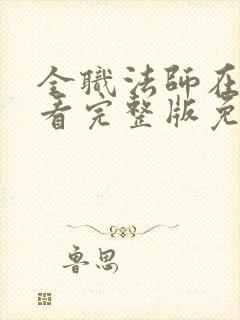 全職法師在
看完整版免
鲁思